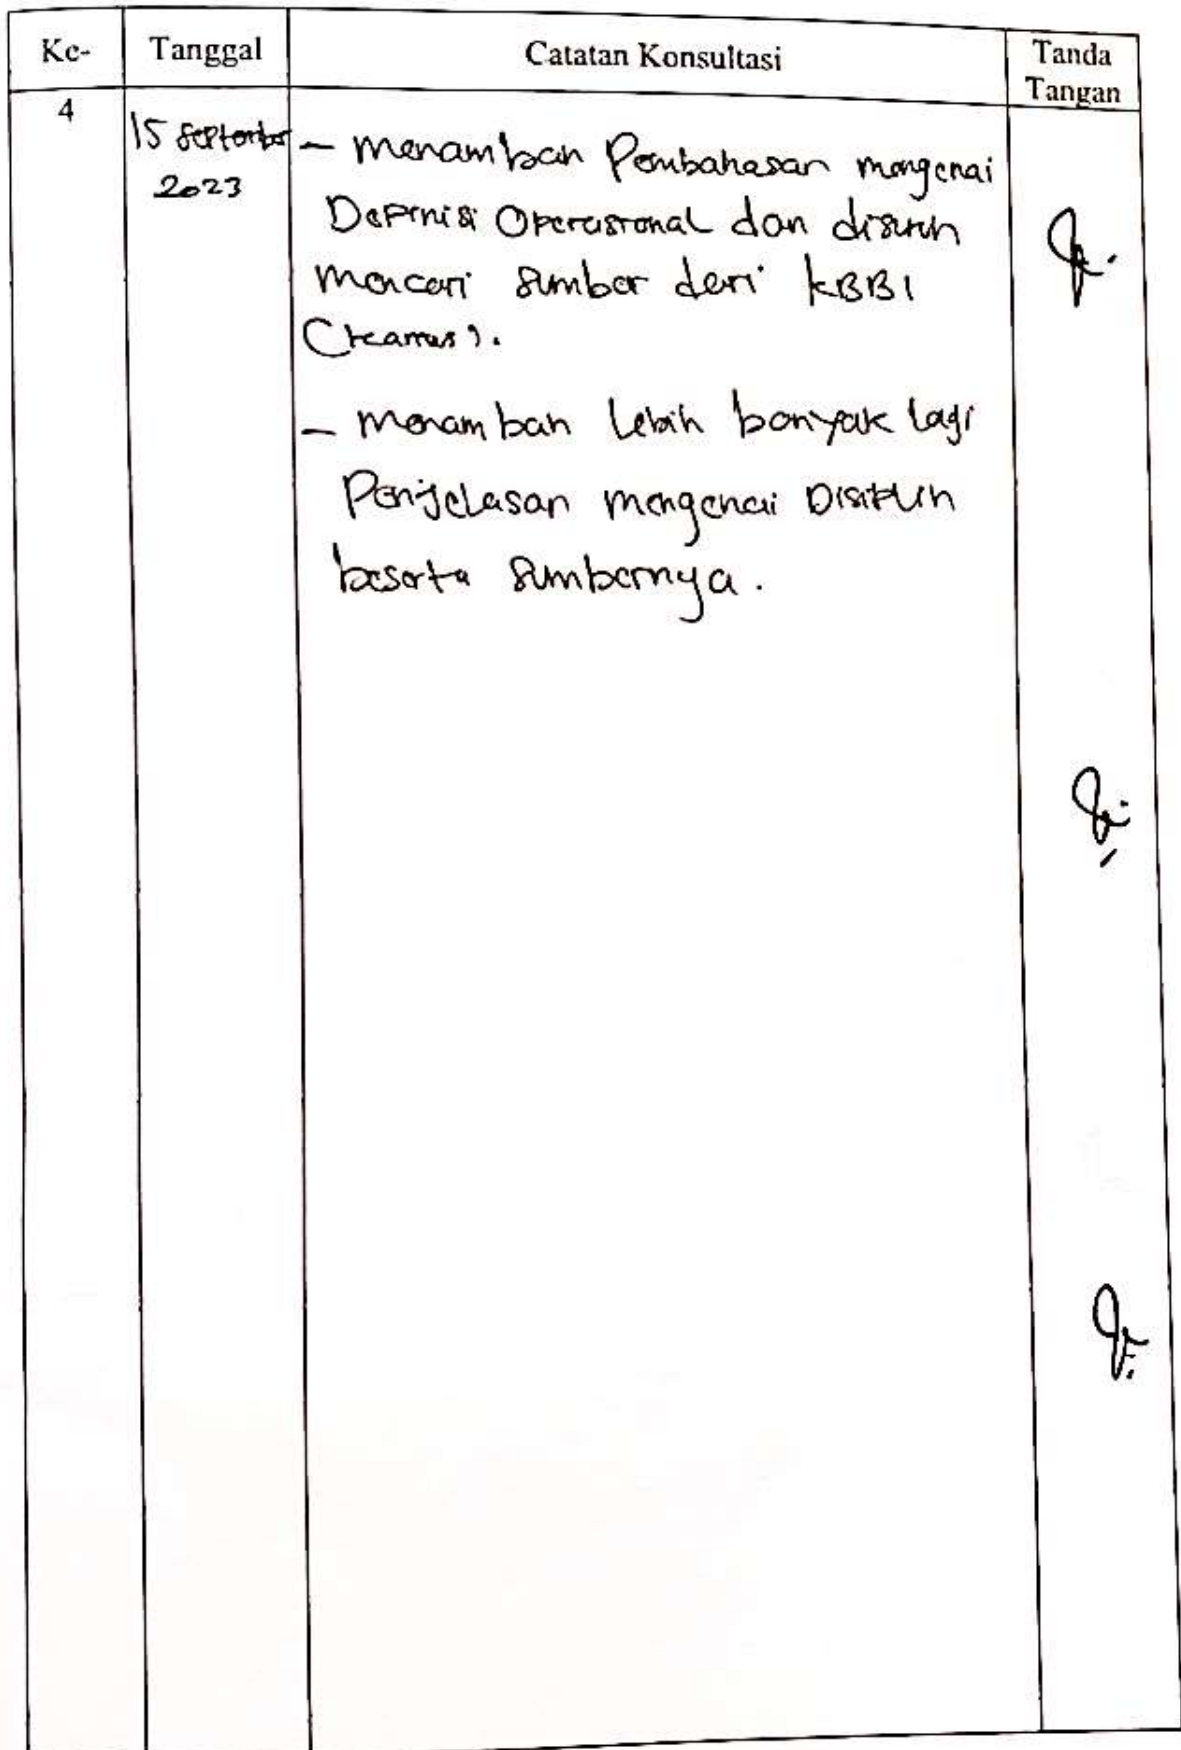 Ke-
Tanggal
Catatan Konsultasi
Tanda
Tangan
4
15 September
2023
- Menambah Pembahasan mengenai
Depinisi Operasional dan disuruh
mencari sumber dari KBBI
(Kamus).
- Menambah Lebih banyak lagi
Penjelasan mengenai Disiplin
beserta Sumbernya.